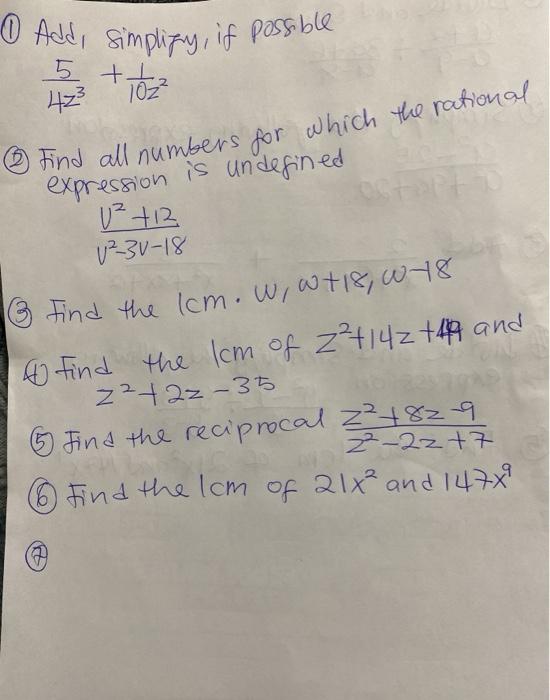 ① Add, simplify, if possible
5/4z³ + 1/10z²
② Find all numbers for which the rational
expression is undefined
V²+12/V²-3V-18
③ Find the lcm. w, w+18, w-18
④ Find the lcm of z²+14z+49 and
z²+2z-35
⑤ Find the reciprocal z²+8z-9/z²-2z+7
⑥ Find the lcm of 21x² and 147x⁹
⑦